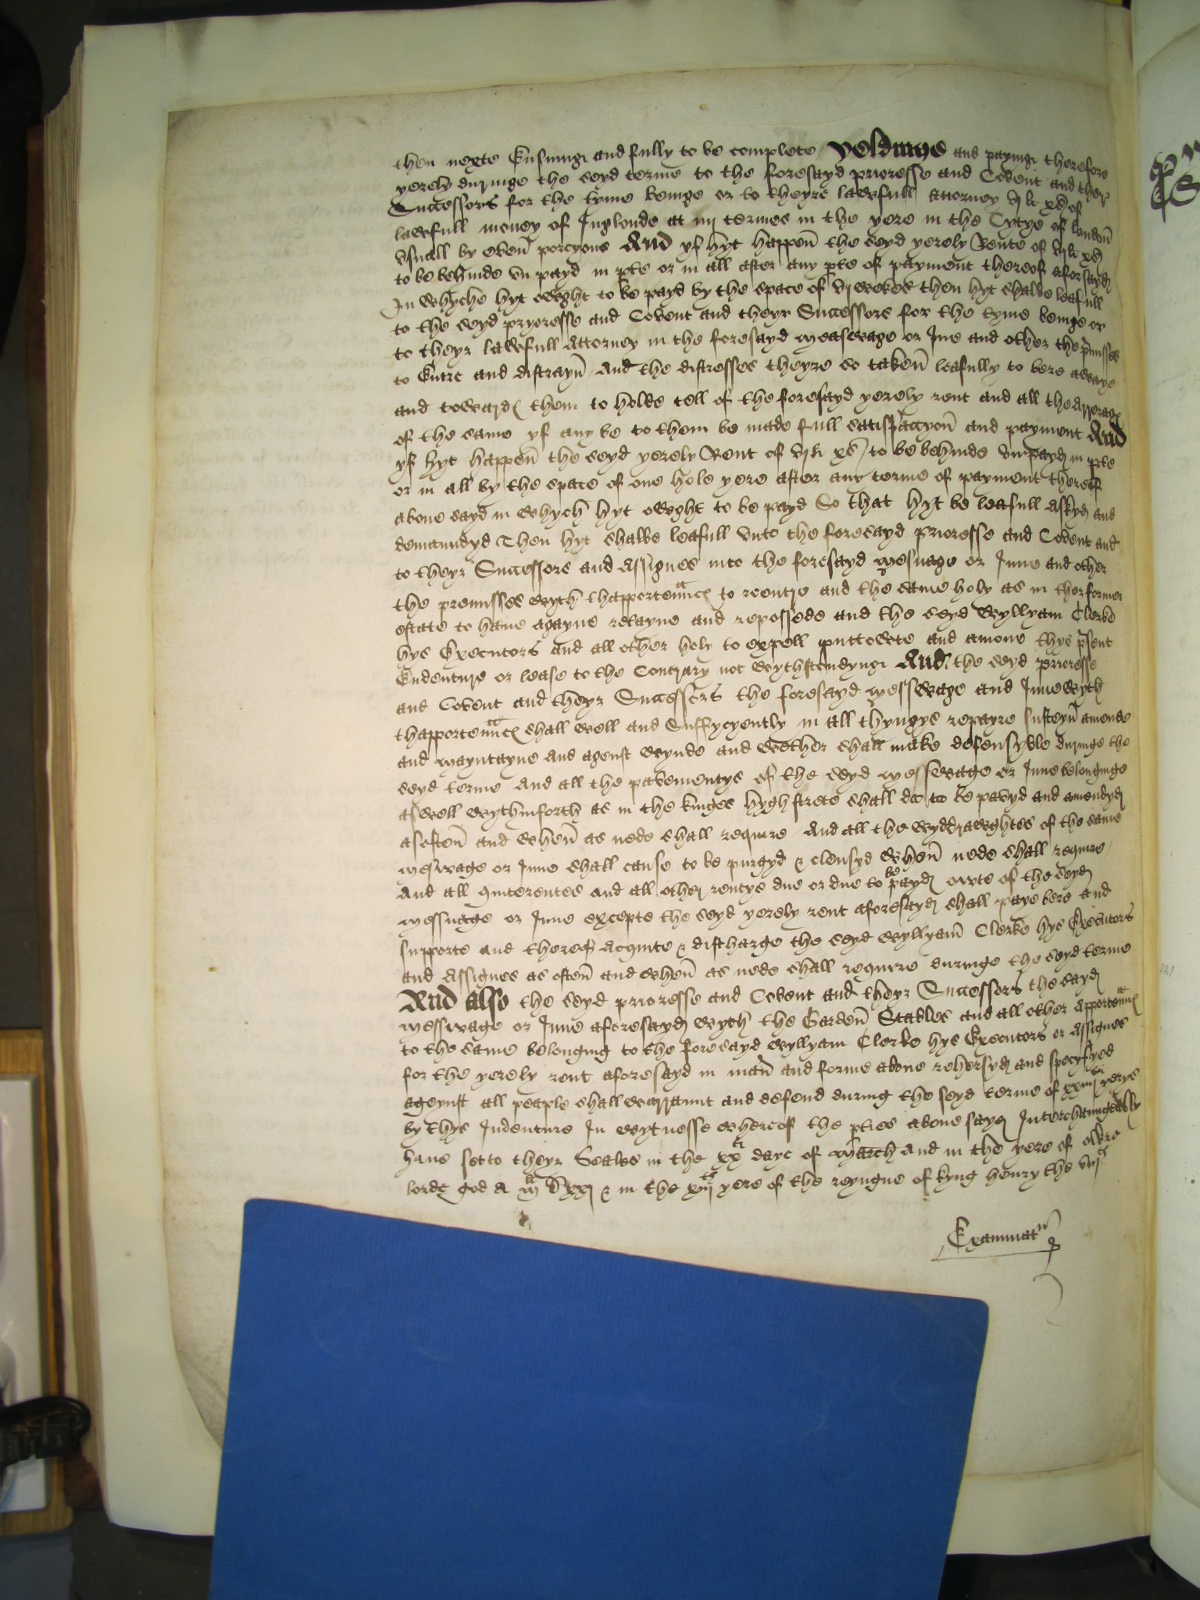 then nexte Ensuinge and fully to be complete yeldinge and payinge therefore
yerely duringe the seyd terme to the foresayd prioresse and Covent and theyr
Successors for the tyme beinge or to theyre lawfull attorney vj li xs of
lawfull money of Inglonde at iiij termes in the yere in the Cytye of london
Usuall by even porcyons And yf hyt happen the seyd yerely Rente of vj li xs
to be behinde un payd in pte or in all after any pte of payment thereof aforsayd
In whyche hyt owght to be payd by the space of vj wekes then hyt shalbe leafull
to the seyd pryoresse and Covent and theyr Successors for the tyme beinge or
to theyr lawfull Attorney in the foresayd measewage or Inne and other the pmisses
to Entre and distrayn And the distresses theyre so taken leafully to bere awaye
and towards them to holde tell of the foresayd yerely rent and all the Arrerags
of the same yf any be to them be made full satisfaccyon and payment And
yf hyt happen the seyd yerely Rent of vj li xs to be behinde un payd in pte
or in all by the space of one hole yere after any terme of payment thereof
above sayd in whych hyt owght to be payd So that hyt be leafull Askyd and
demaundyd Then hyt shalbe leafull unto the foresayd prioresse and Covent and
to theyr Successors and Assignes into the foresayd mesuage or Inne and other
the premisses wyth thapportennces to reentre and the same holy as in ther former
estate to have agayne retayne and repossede and the seyd Wyllyam Clerke
hys Executors and all other holy to expell putt owte and amove thys psent
Endenture or lease to the Contrary not wythstondynge And the seyd prioresse
and Covent and theyr Successors the foresayd messwage and Inne wyth
thapportennces shall well and Suffycyently in all thyngys repayre susteyn amende
and mayntayne And agenst wynde and wether shall make defensyble duringe the
seyd terme And all the pavementys of the seyd messwage or Inne belonginge
aswell wythinforth as in the kinges hygh strete shall do to be pavyd and amendyd
as often and when as nede shall require And all the wyddrawghtes of the same
meswage or Inne shall cause to be purgyd & clensyd when nede shall require
And all quiterentes and all other rentys due or due to be payd owte of the seyd
messuage or Inne excepte the seyd yerely rent aforesayd shall paye bere and
supporte and thereof Acquite & discharge the seyd Wyllyam Clerke hys Executors
and Assignes as often and when as nede shall require duringe the seyd terme
And also the seyd prioresse and Covent and theyr Successors the sayd
messwage or Inne aforesayd wyth the Garden Stables and all other Apportennces
to the same belonging to the foresayd Wyllyam Clerke hys Executors or Assignes
for the yerely rent aforesayd in man and forme above rehersyd and specyfyed
ageynst all people shall warraunt and defend during the seyd terme of xxiiij yerys
by thys Indenture In wytnesse whereof the pties above sayd Interchaungeably
have set to theyr Seales in the xx ti daye of March And in the yere of owre
lorde god A m Vxxj & in the xiij yere of the reyngne of kyng henry the viij
Examinat